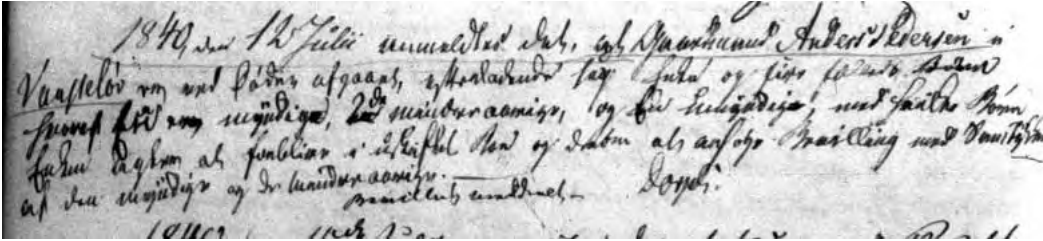 1840, den 12 Julii anmeldtes det, at Gaardmand Anders Pedersen i
Vangsteløv er ved Døden afgaaet, efterladende sig Enke og fire fælles Børn
hvoraf er myndige, 2de mindreaarige, og En umyndige, med hvilke Børn
Enken agter at forblive i uskiftet Boe og derom at ansøge Bevilling med Samtykke
af den myndige og de mindreaarige. Dorph.
Bevilling meddeelt
1840